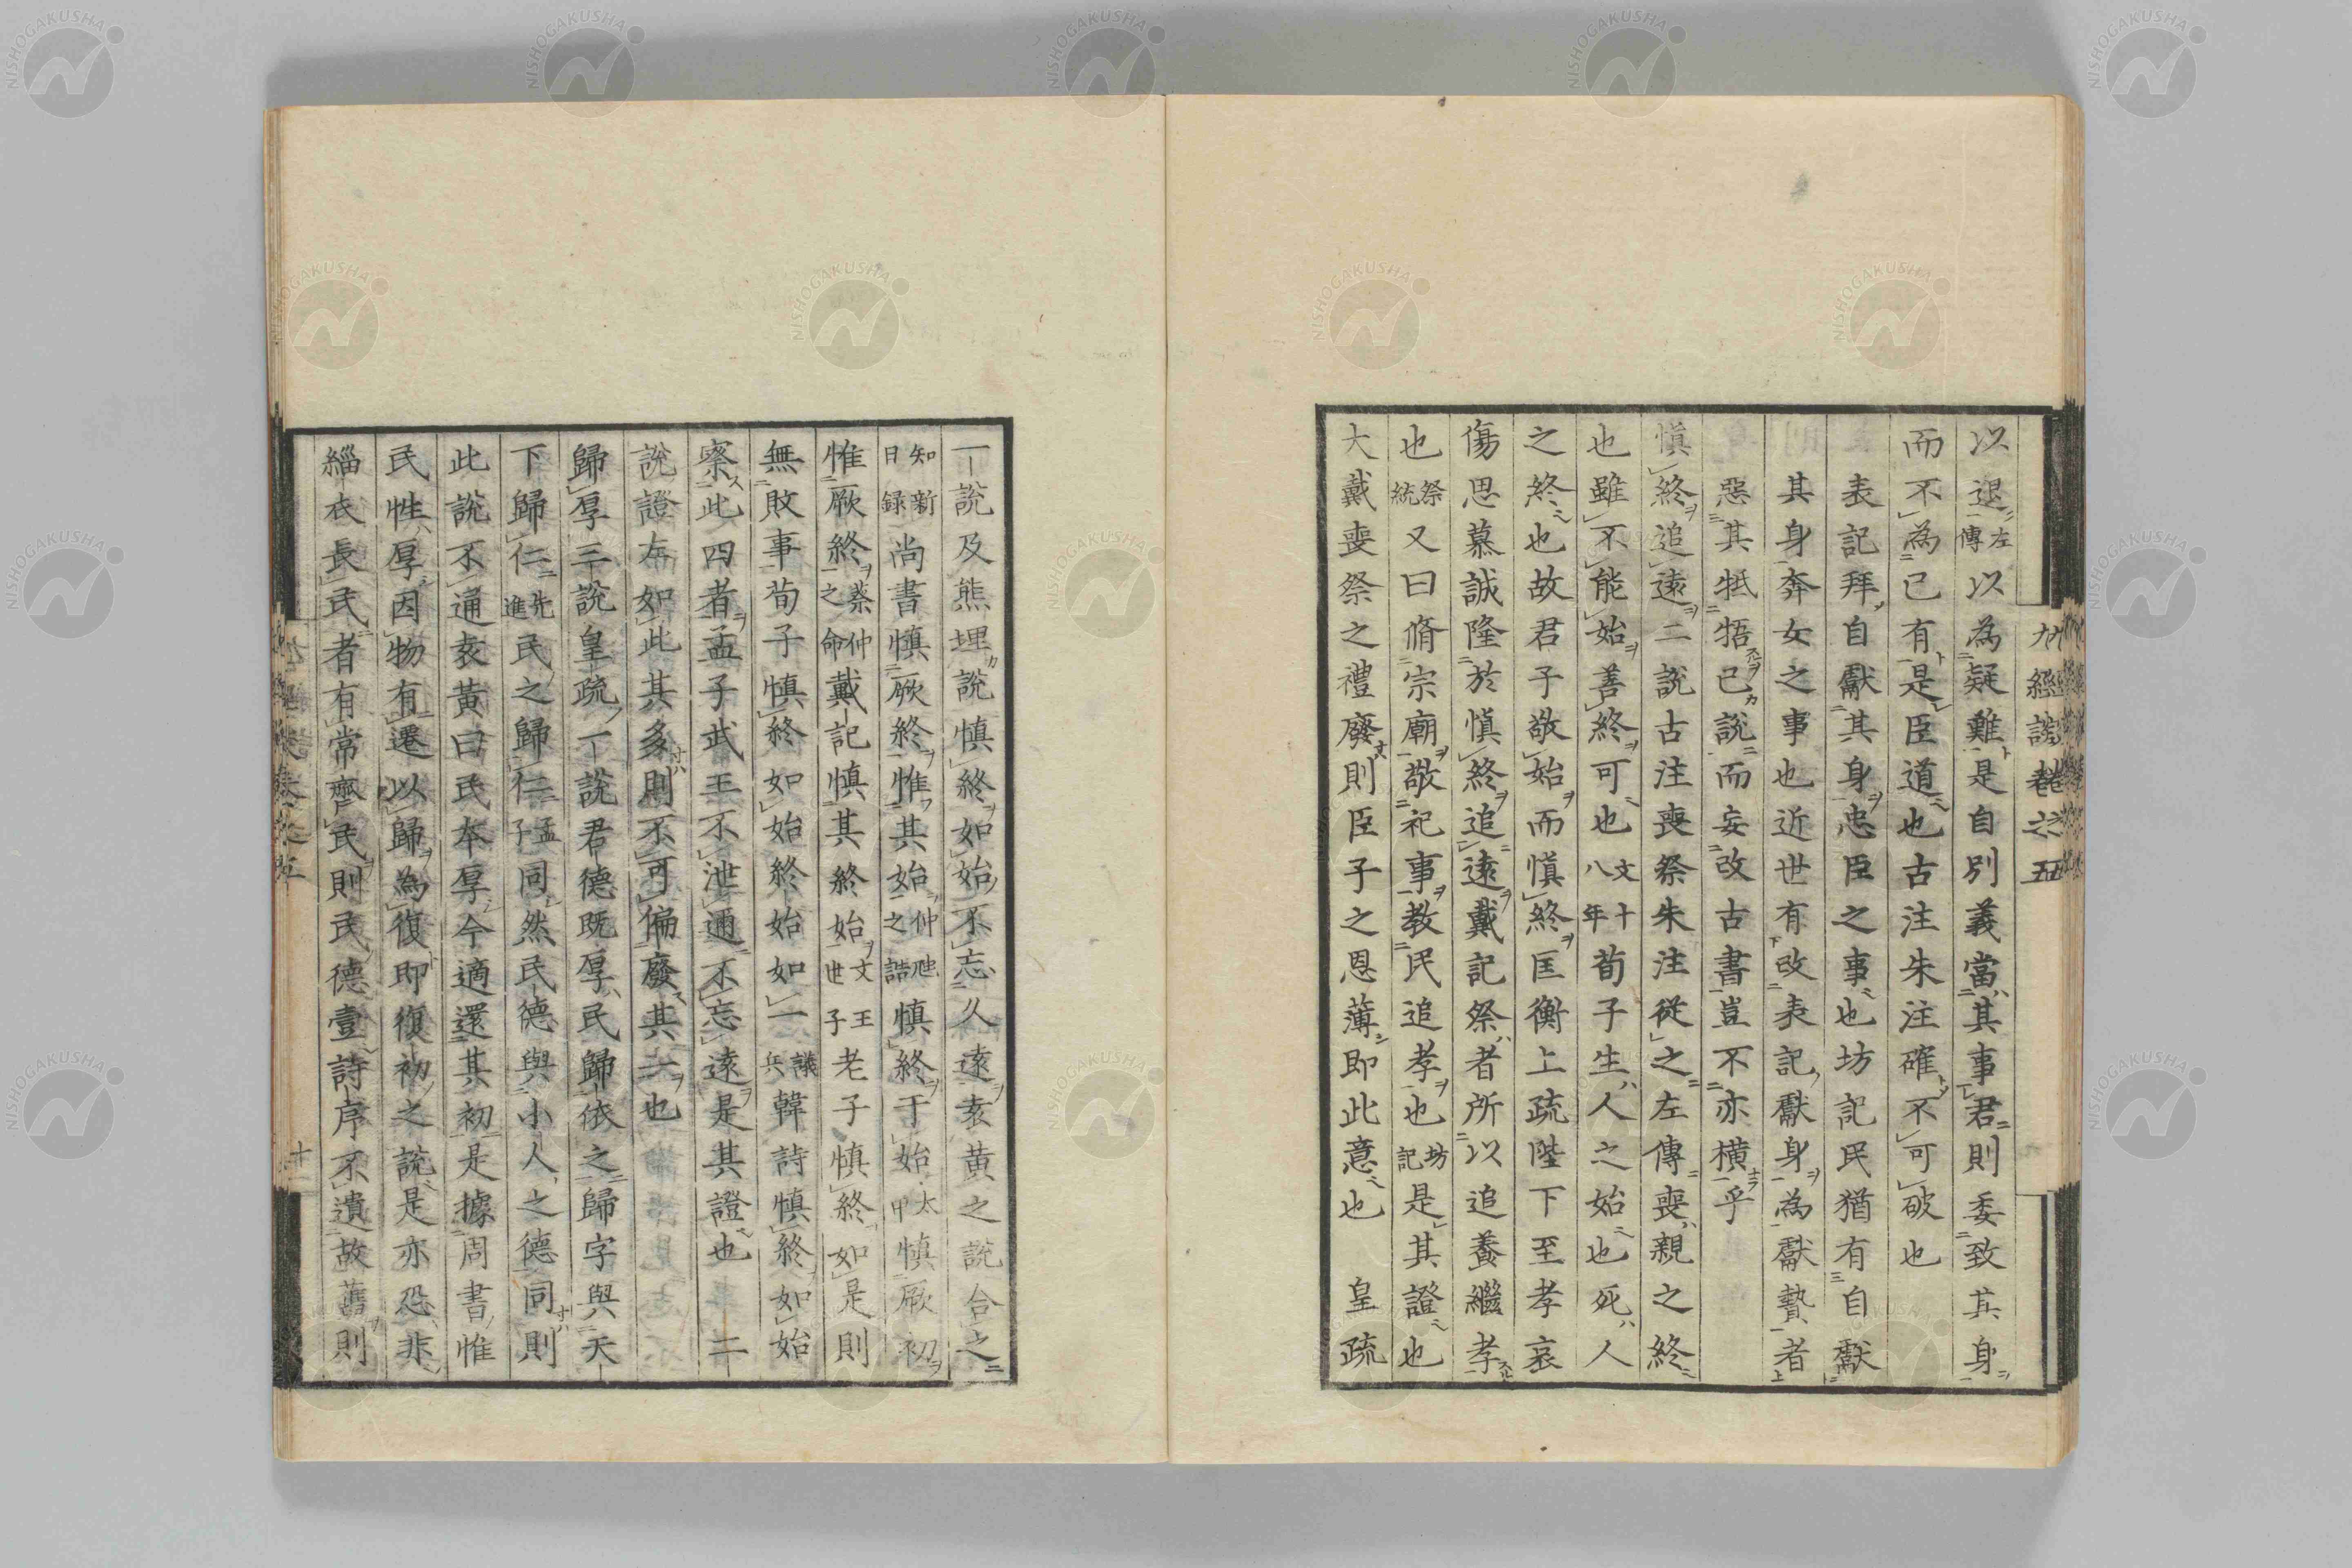 九經談卷之五
以退左傳以為疑難是自別義當其事君則委致其身
而不為已有是臣道也古注朱注確不可破也
表記拜自獻其身忠臣之事也坊記民猶有自獻
其身奔女之事也近世有改表記獻身為獻贄者
惡其牴牾已說而妄改古書豈不亦橫乎
慎終追遠二說古注喪祭朱注從之左傳喪親之終
也雖不能始善終可也文十八年荀子生人之始也死人
之終也故君子敬始而慎終匡衡上疏陛下至孝哀
傷思慕誠隆於慎終追遠戴記祭者所以追養繼孝
也祭統又曰脩宗廟敬祀事教民追孝也坊記是其證也
大戴喪祭之禮廢則臣子之恩薄即此意也 皇疏
一說及熊埋說慎終如始不忘久遠袁黃之說合之
知新日録尚書慎厥終惟其始仲虺之誥慎終于始太甲慎厥初
惟厥終蔡仲之命戴記慎其終始文王世子老子慎終如是則
無敗事荀子慎終如始終始如一議兵韓詩慎終如始
察此四者孟子武王不泄邇不忘遠是其證也 二
說證左如此其多則不可偏廢其一也
歸厚三說皇疏一說君德既厚民歸依之歸字與天
下歸仁先進民之歸仁孟子同然民德與小人之德同則
此說不通袁黃曰民本厚今適還其初是據周書惟
民性厚因物有遷以歸為復即復初之說是亦恐非
緇衣長民者有常齊民則民德壹詩序不遺故舊則
十一
NISHOGAKUSHA